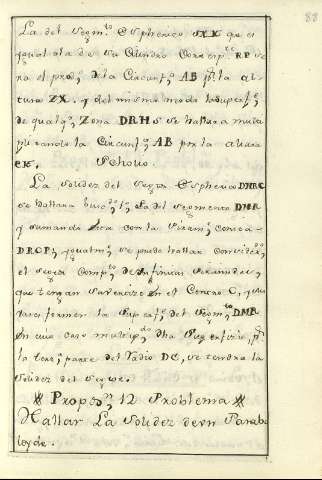 88
La del Segm.to Espherico SXK que es
igual a la de su Cilindro Correspte RP se
ra el prod.o de la Circunf.a AB p.r la al
tura ZX. y del mismo modo la superf.e
de qualq.a Zona DRHS se hallara multi
plicando la Circunf.a AB por la altura
CK. Scholio.
La Solidez del Sector Espherico DMRC
se hallara busc.do la del segmento DMR
y sumando esta con la Piram.l conica
DRCP; igualm.te se puede hallar consider.do
el sector comp.to de infinitas Piramides,
que tengan su vertice en el Centro C, y cu
formen la Superf.e del Segm.to DMR
En cuio caso multip.do dha Superficie, p.r
la terc.a parte del Radio DC, se tendra la
Solidez del Sector.
Propos.n 12 Problema
Hallar La Solidez de un Parabo
loyde.